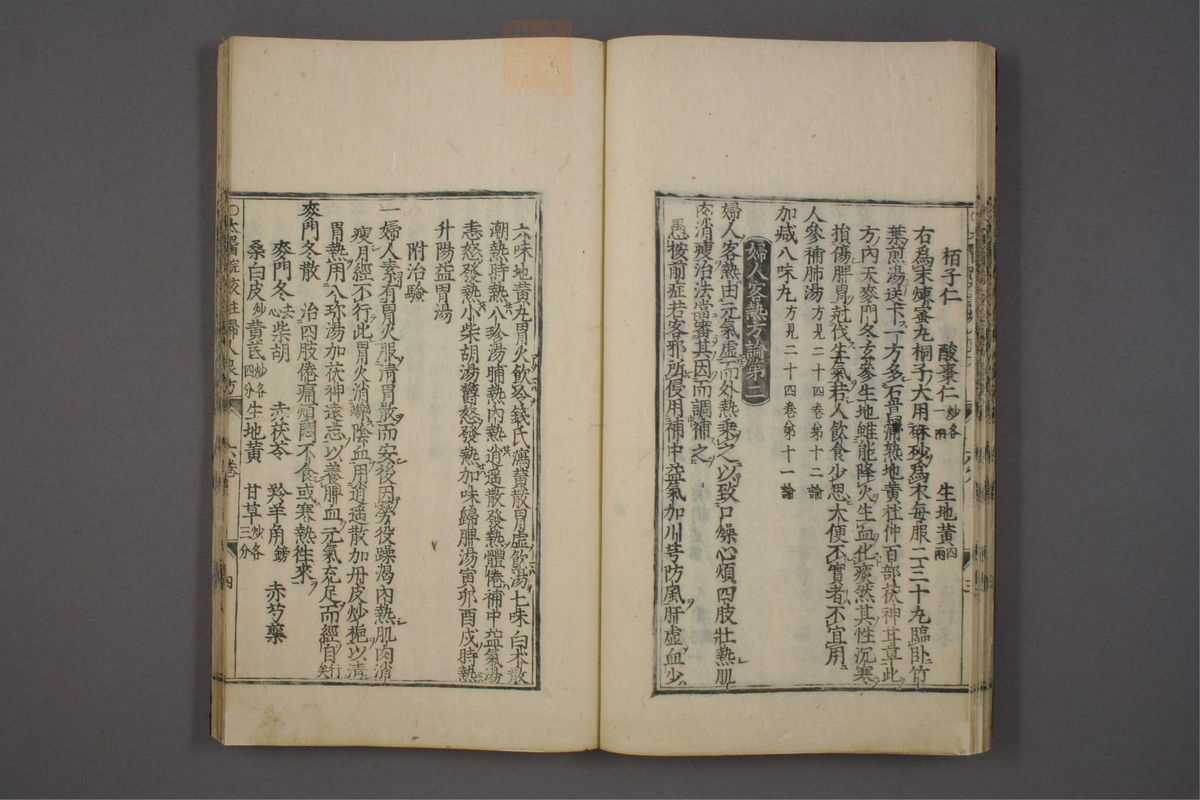 栢子仁　酸棗仁炒各一兩　生地黃四兩
右爲末煉蜜丸桐子大用硃砂爲衣每服二三十丸臨臥竹
葉煎湯送下一方多石菖蒲熟地黃杜仲百部茯神甘草此
方內天麥門冬玄參生地雖能降火生血化痰然其性沉寒
損傷脾胃尅伐生氣若人飲食少思大便不實者不宜用
人參補肺湯方見二十四卷第十二論
加減八味丸方見二十四卷第十一論
婦人客熱方論第二
婦人客熱由元氣虛而外熱乘之以致口燥心煩四肢壯熱肌
肉消瘦治法當審其因而調補之
愚按前症若客邪所侵用補中益氣加川芎防風肝虛血少
六味地黃丸胃火飲冷錢氏瀉黃散胃虛飲湯七味白朮散
潮熱時熱八珍湯晡熱內熱逍遥散發熱體倦補中益氣湯
恚怒發熱小柴胡湯鬱怒發熱加味歸脾湯寅卯酉戌時熱
升陽益胃湯
附治驗
一婦人素有胃火服清胃散而安後因勞役躁渴內熱肌肉消
瘦月經不行此胃火消爍陰血用逍遥散加丹皮炒梔以清
胃熱用八珍湯加茯神遠志以養脾血元氣充足而經自行矣
麥門冬散　治四肢倦痛煩悶不食或寒熱徃來
麥門冬去心　柴胡　赤茯苓　羚羊角鎊　赤芍藥
桑白皮炒　黃芪炒各四分　生地黃　甘草炒各三分
○太醫院校註婦人良方　六卷　四